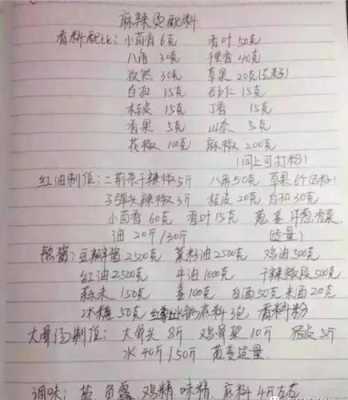 麻辣烫配料
香料配比：小茴香6克 香叶50克
八角30克 40克
孜然30克 草果20克(去籽)
白扣15克 15克
桂皮15克 丁香15克
香果5克 山奈5克
花椒100克 麻椒200克
(同上可打粉)
红油制作：二荆条干辣椒5斤 八角50克 草果6个
子弹头辣椒3斤 桂皮20克 白扣30克
小茴香60克 香叶15克 葱姜洋葱香菜
油20斤/30斤 (适量)
酱：豆瓣酱2500克 菜籽油2500克 鸡油500克
红油2500克 牛油1000克 干辣椒段500克
蒜末150克 姜100克 白酒50克 米酒20克
冰糖50克 火锅底料3包 香料粉
大骨汤制作：大骨头8斤 鸡骨架10斤 猪皮3斤
水40斤/50斤 葱姜适量
调味：盐 鸡精 味精 麻料4斤左右